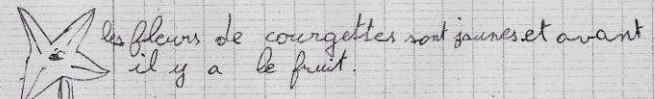 les fleurs de courgettes sont jaunes. et avant
il y a le fruit.